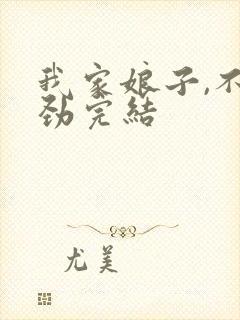 我家娘子,不
劲完結
尤美